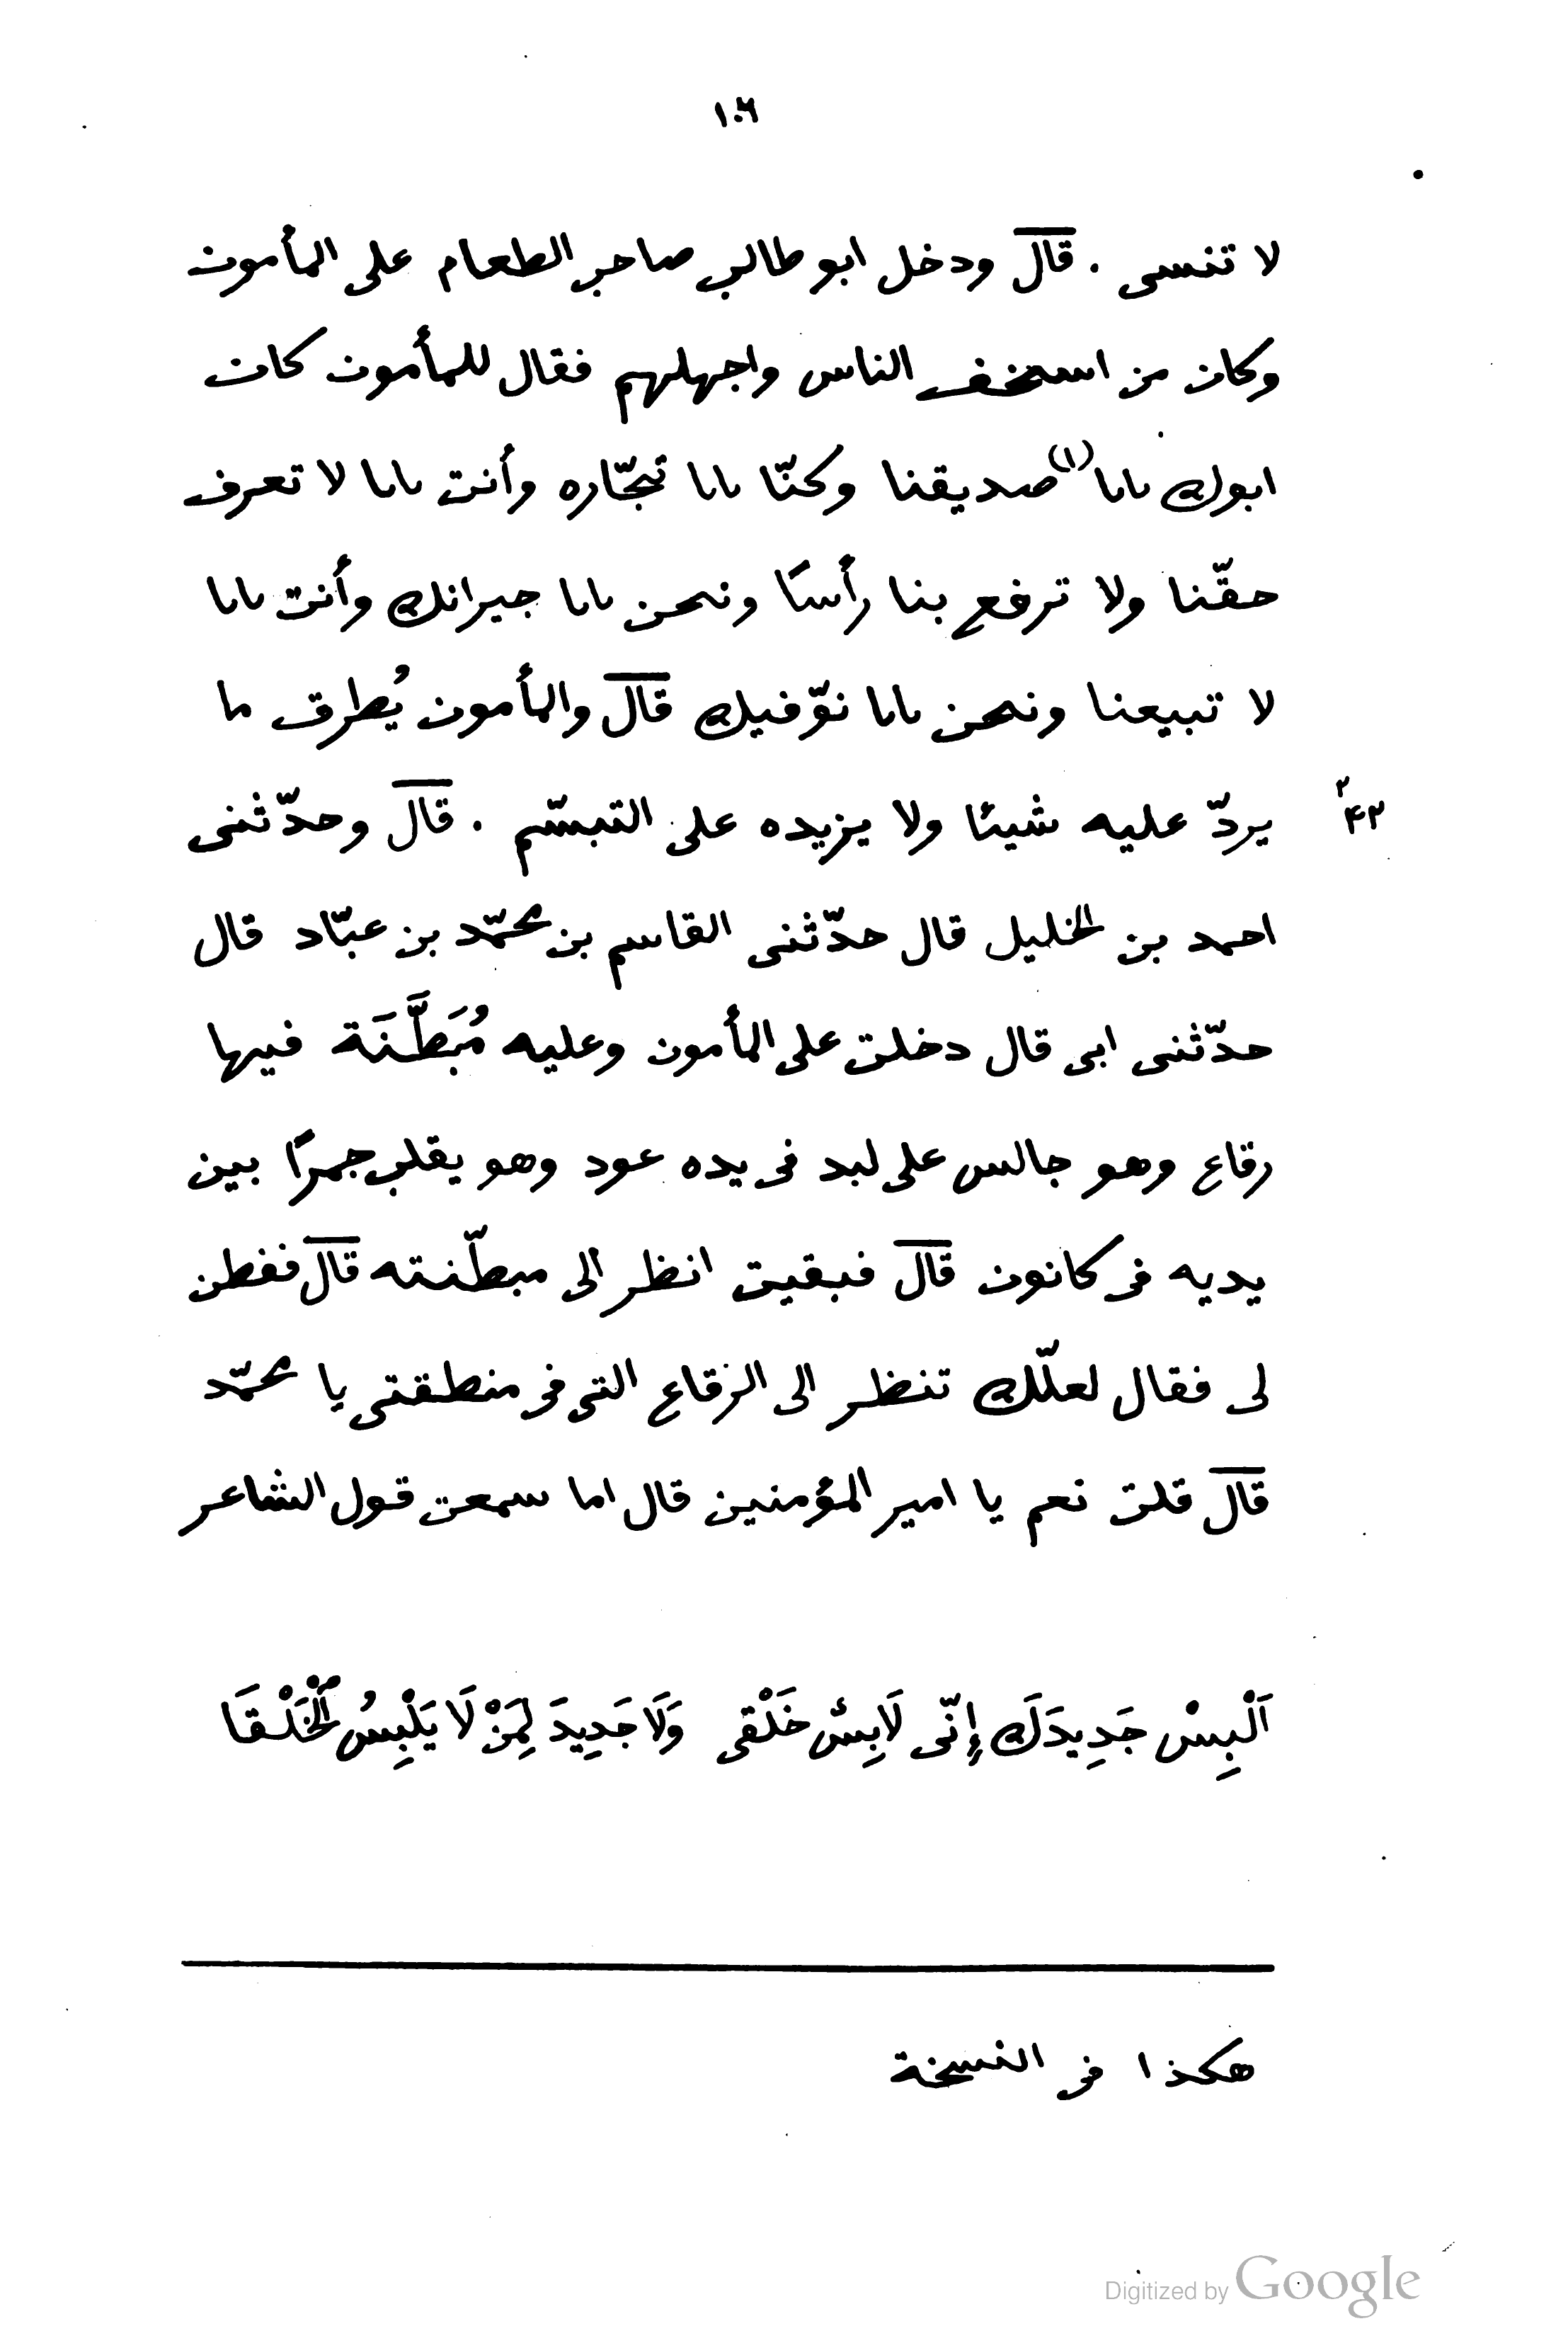 ١٠٦
لا تنسى . قال ودخل ابو طالب صاحب الطعام على المأمون
وكان من اسخف الناس واجهلهم فقال للمأمون كان
ابوك ٮاٮا (١) صديقنا وكنّا ٮاٮا تجّاره وأنت ٮاٮا لا تعرف
حقّنا ولا ترفع بنا رأسًا ونحن ٮاٮا جيرانك وأنت ٮاٮا
لا تبيعنا ونحن ٮاٮا نوّفيك قال والمأمون يُطرق ما
يردّ عليه شيئا ولا يزيده على التبسّم . قال وحدّثنى
احمد بن الخليل قال حدّثنى القاسم بن محمّد بن عبّاد قال
حدّثنى ابى قال دخلت على المأمون وعليه مُبَطَّنَة فيها
رقاع وهو جالس على لبد فى يده عود وهو يقلب جمرًا بين
يديه فى كانون قال فبقيت انظر الى مبطّنته قال ففطن
لى فقال لعلّك تنظر الى الرقاع التى فى منطقتى يا محمّد
قال قلت نعم يا امير المؤمنين قال اما سمعت قول الشاعر
اَلْبِسْ جَدِيدَكَ إِنّى لَابِسٌ خَلْقى وَلَا جَدِيدَ لِمَنْ لَا يَلْبِسُ الْخَلْقَا
هكذا فى النسخة
Digitized by Google